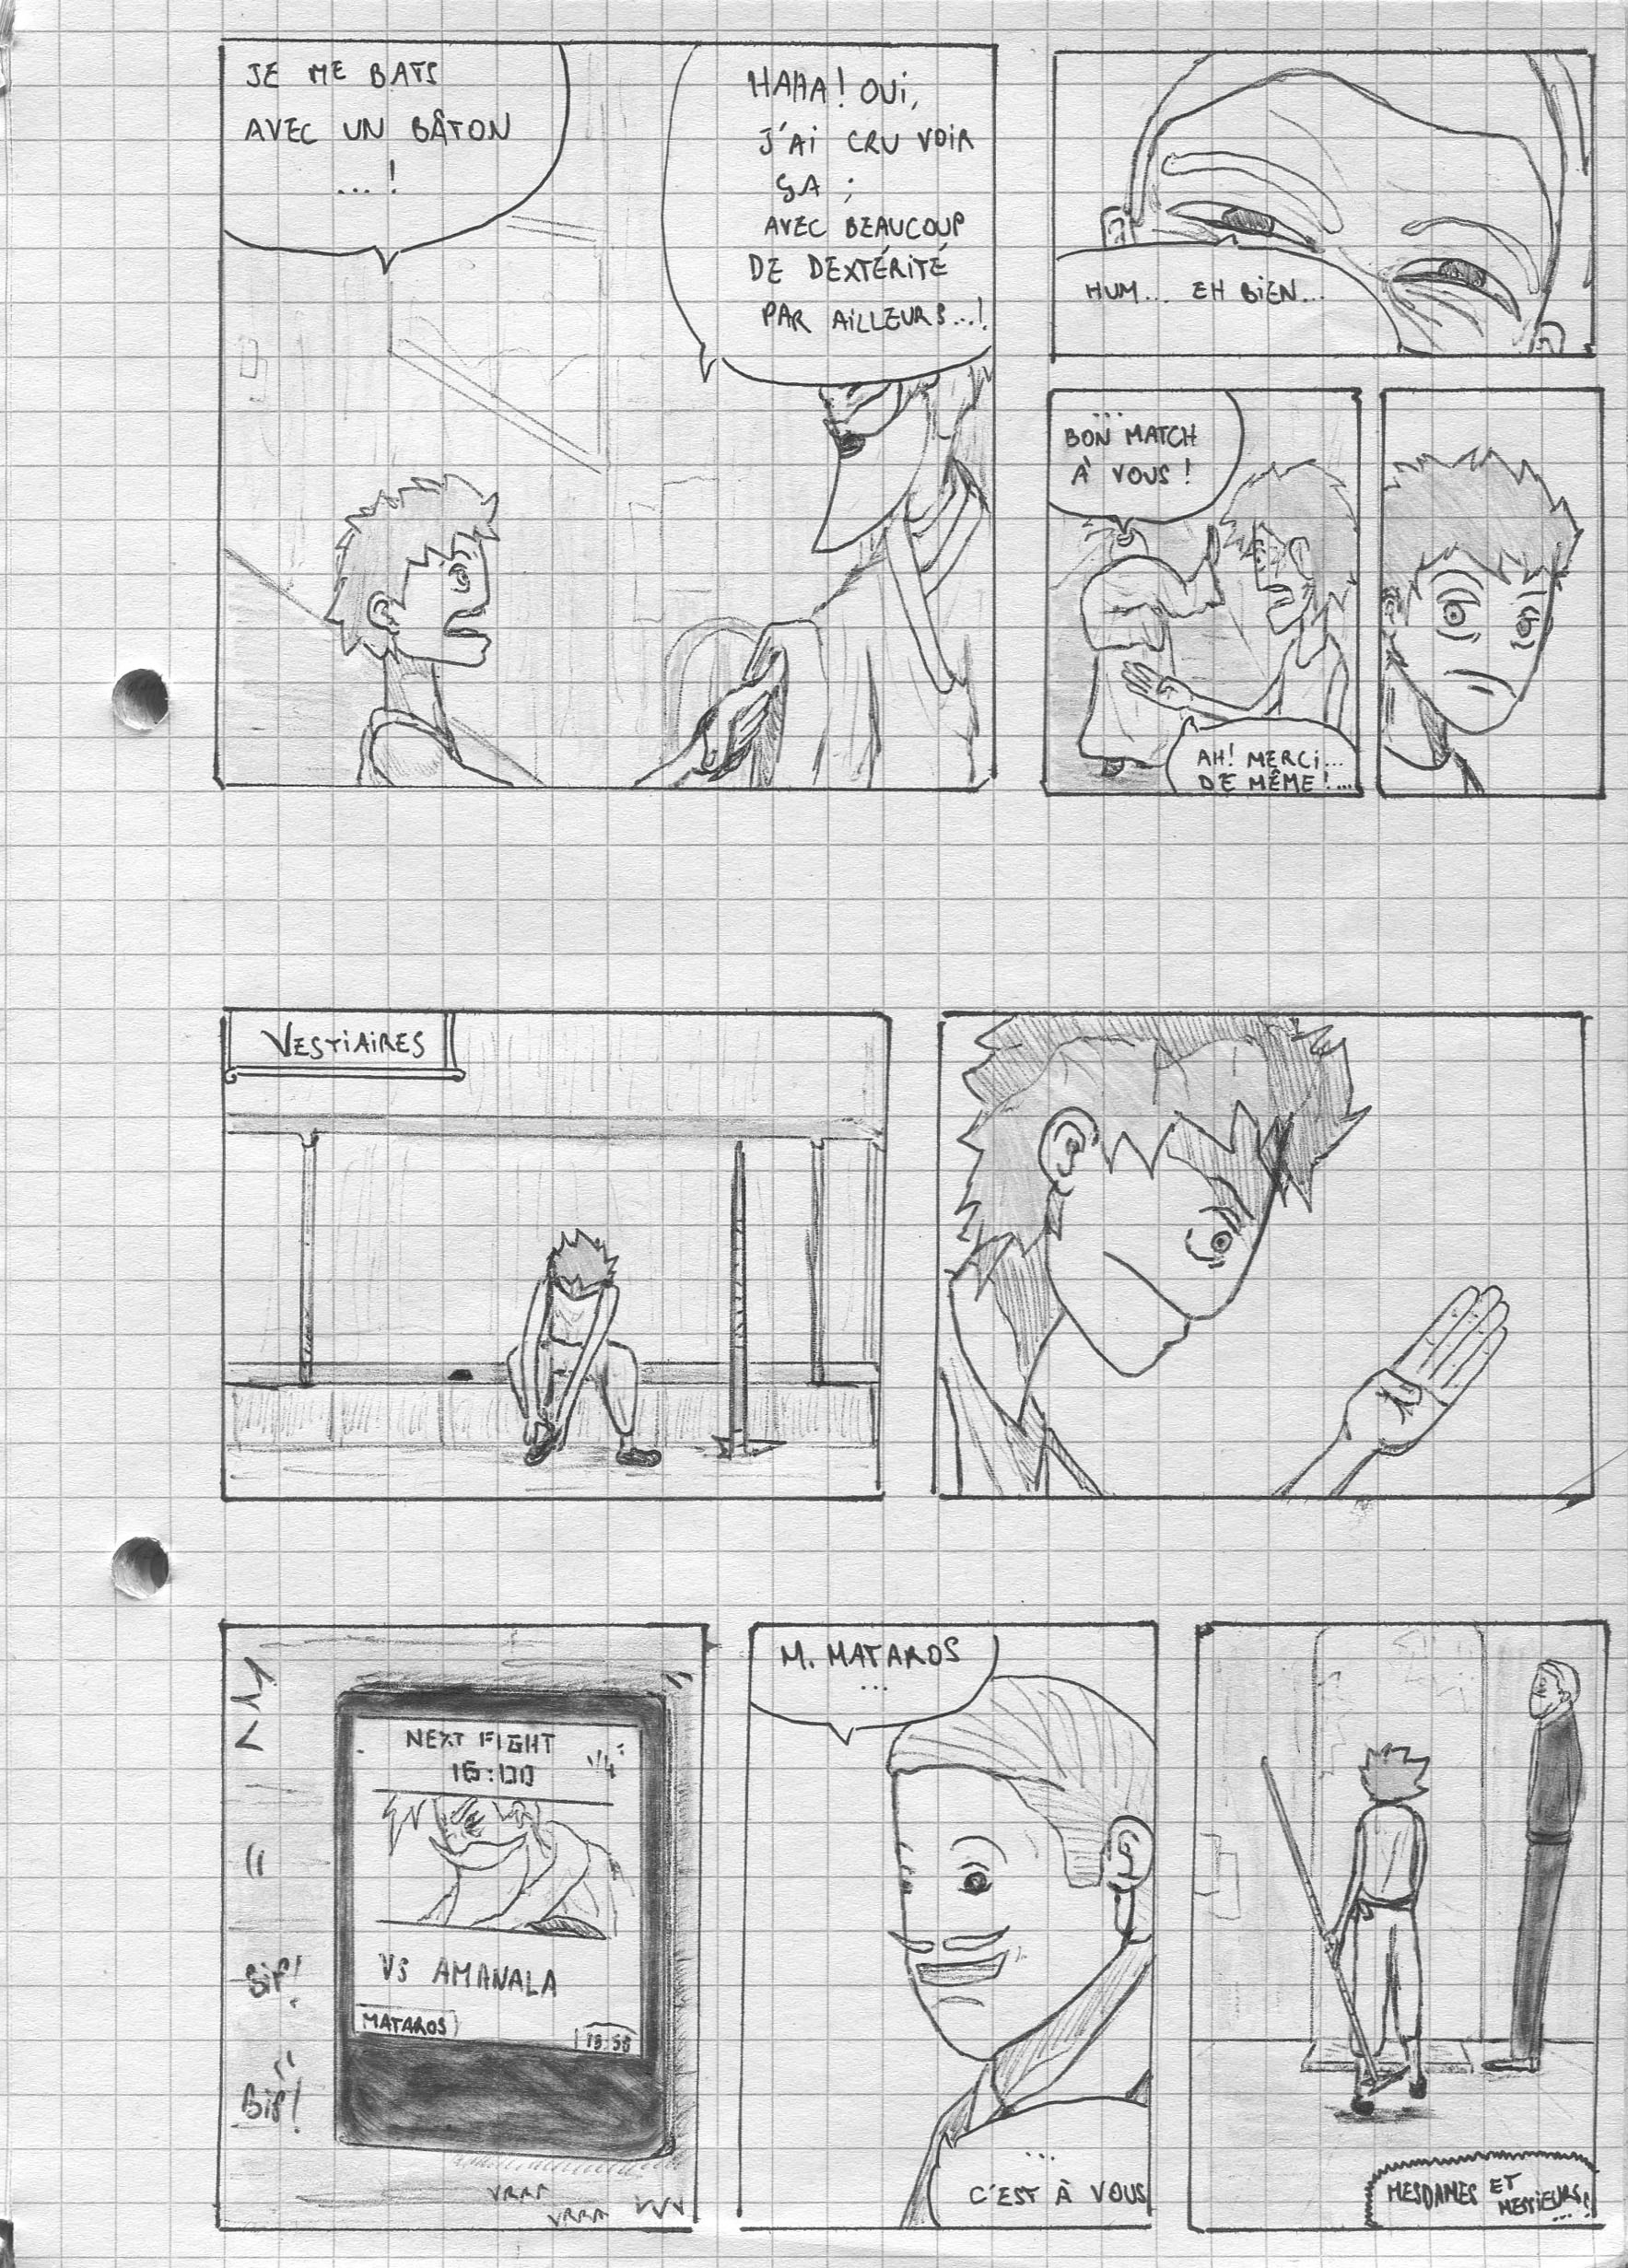 JE ME BATS
AVEC UN BÂTON
...!
HAHA! OUI,
J'AI CRU VOIR
ÇA ;
AVEC BEAUCOUP
DE DEXTÉRITÉ
PAR AILLEURS...!
HUM... EH BIEN...
...
BON MATCH
À VOUS !
AH! MERCI...
DE MÊME !...
VESTIAIRES
NEXT FIGHT
16:00
1/4
VS AMANALA
MATAROS
BIP!
BIP!
VRRR
VRRR
M. MATAROS
...
...
C'EST À VOUS
MESDAMES ET
MESSIEURS!
...